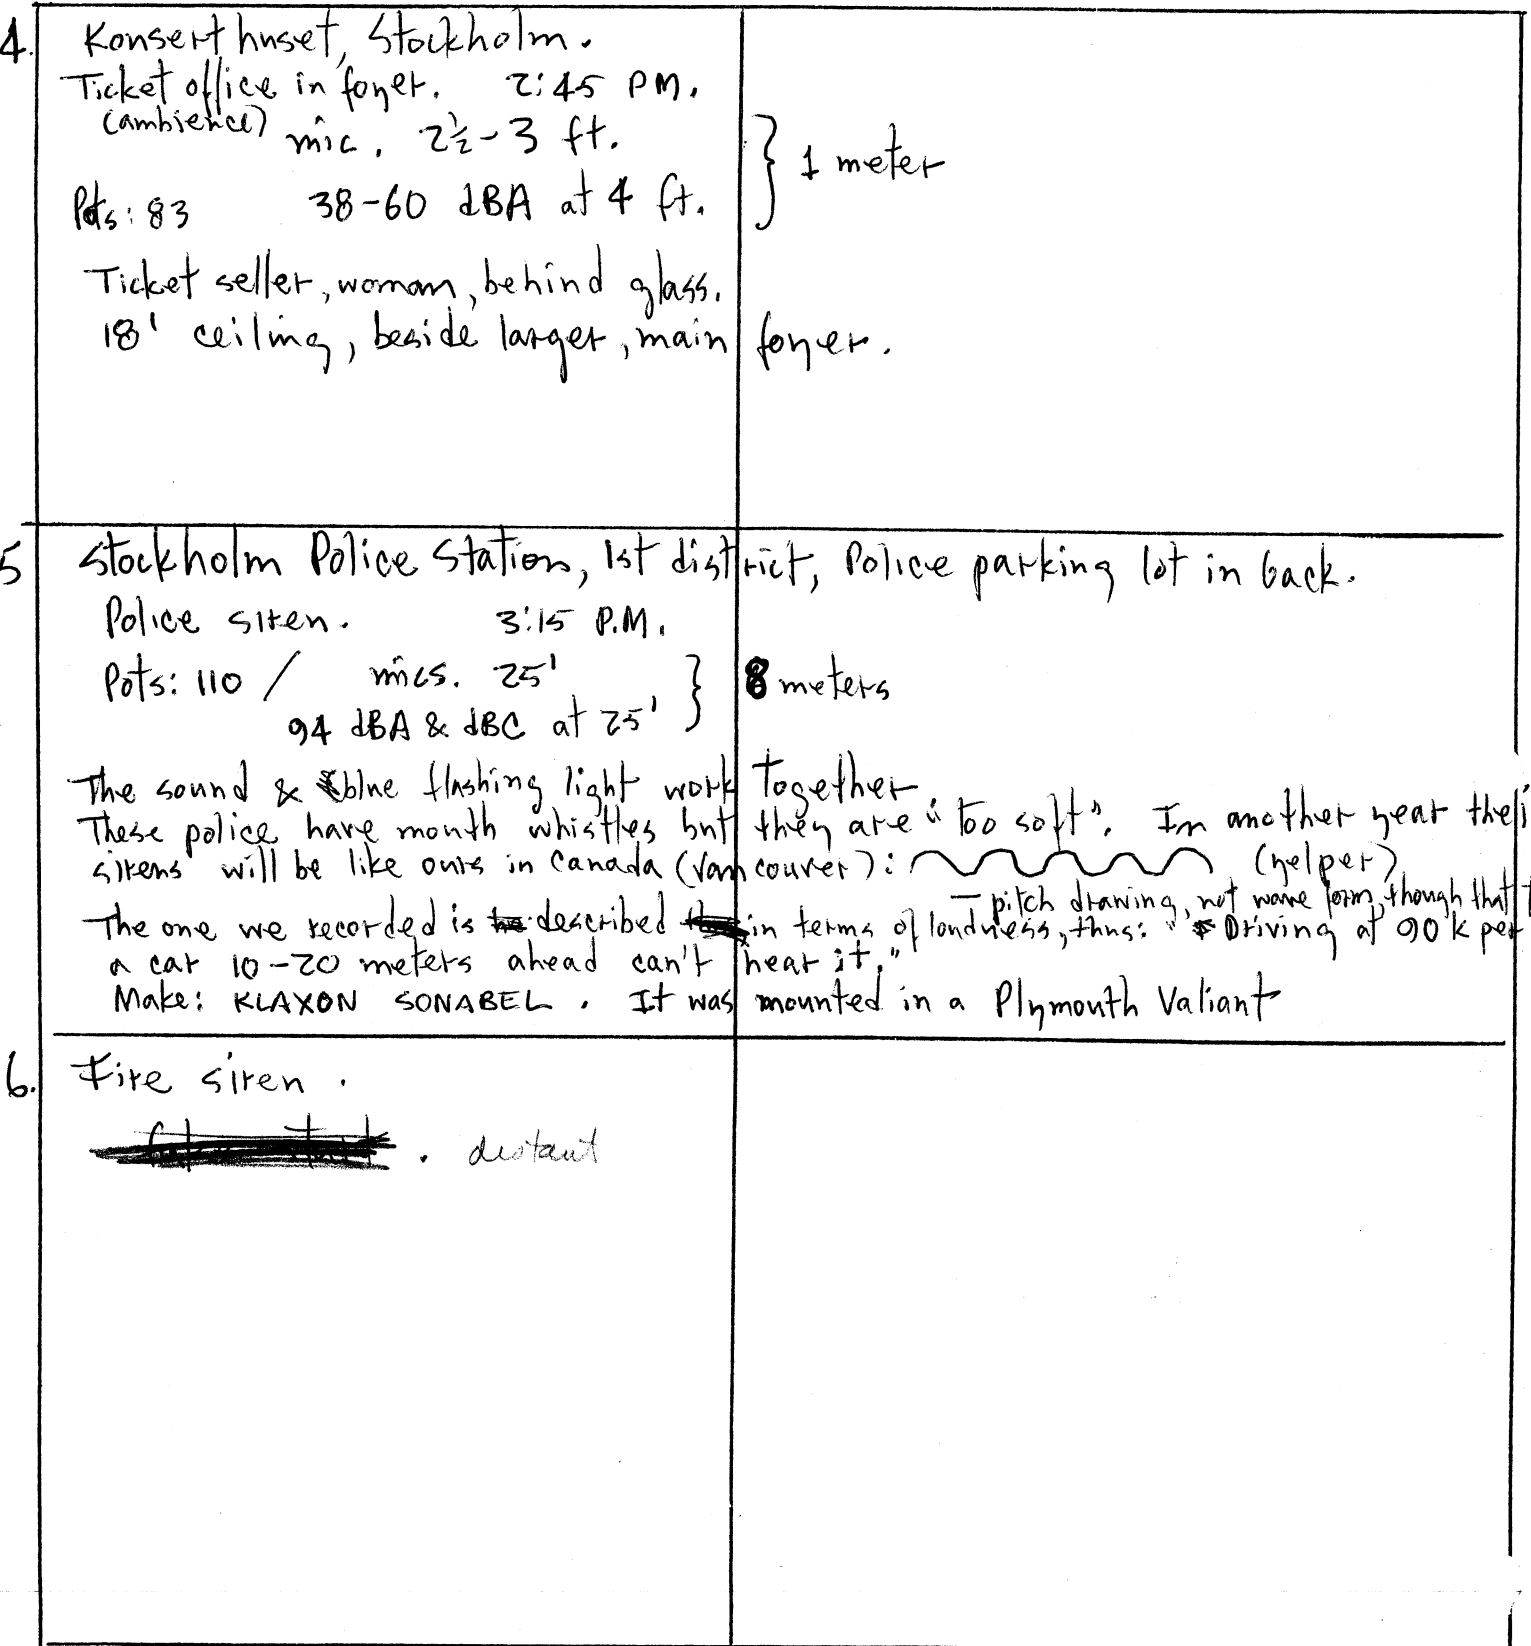 4. Konserthuset, Stockholm.
Ticket office in foyer. 2:45 PM.
(ambience) mic. 2½-3 ft.
} 1 meter
Pots: 83 38-60 dBA at 4 ft.
Ticket seller, woman, behind glass.
18' ceiling, beside larger, main foyer.
5 Stockholm Police Station, 1st district, Police parking lot in back.
Police siren. 3:15 P.M.
Pots: 110 / mics. 25' } 8 meters
94 dBA & dBC at 25'
The sound & blue flashing light work together.
These police have mouth whistles but they are "too soft". In another year their
sirens will be like ours in Canada (Vancouver): (yelper)
— pitch drawing, not wave form, though that
The one we recorded is described in terms of loudness, thus: "Driving at 90 k per
a car 10-20 meters ahead can't hear it."
Make: KLAXON SONABEL. It was mounted in a Plymouth Valiant
6. Fire siren.
. distant